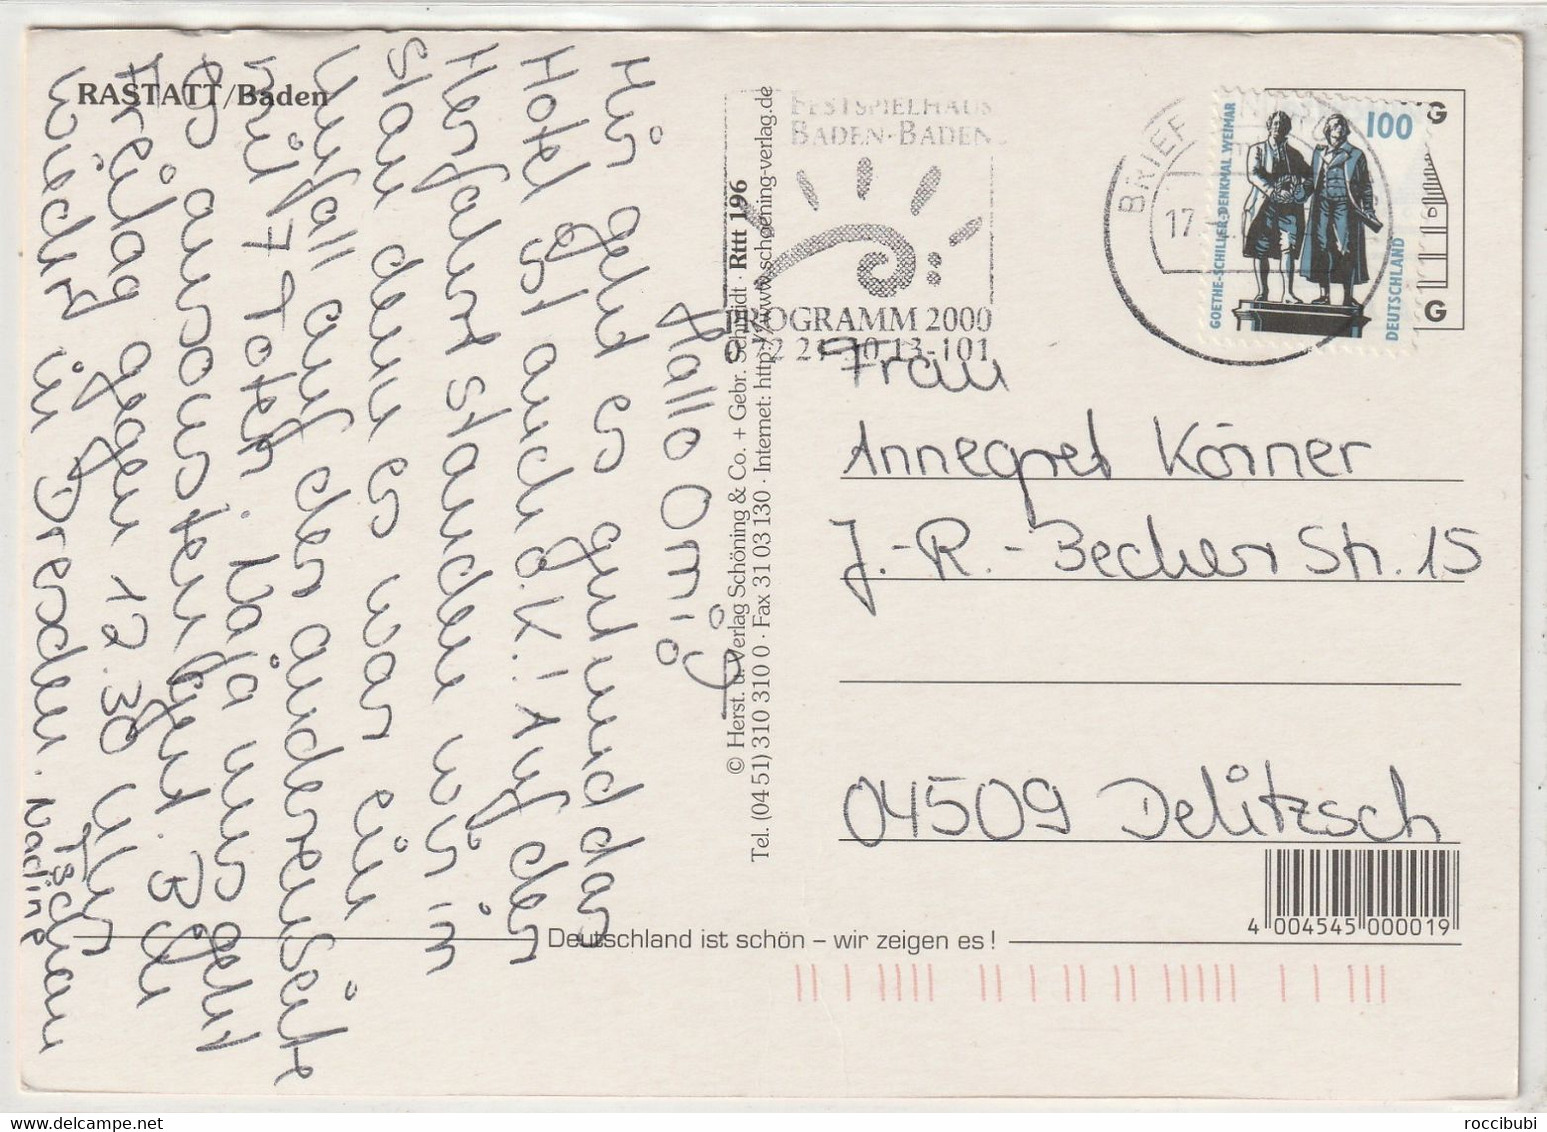 RASTATT/Baden
Hallo Omi,
Mir geht es gut und das
Hotel ist auch o.K.! Auf der
Herfahrt standen wir im
Stau denn es war ein
Unfall auf der anderen Seite
mit 7 Toten. Naja uns geht
es ansonsten gut. Bin
Freitag gegen 12.30 Uhr
wieder in Dresden.
Tschau
Nadine
© Herst. u. Verlag Schöning & Co. + Gebr. Schmidt · Rttt 196
Tel. (04 51) 310 310 0 · Fax 31 03 130 · Internet: http://www.schoening-verlag.de
FESTSPIELHAUS
BADEN-BADEN
PROGRAMM 2000
0 72 21-30 13-101
BRIEF
17
GOETHE-SCHILLER-DENKMAL WEIMAR
100
DEUTSCHLAND
G
G
Frau
Annegret Körner
J.-R.-Becher Str. 15
04509 Delitzsch
4 004545 000019
Deutschland ist schön – wir zeigen es!
roccibubi